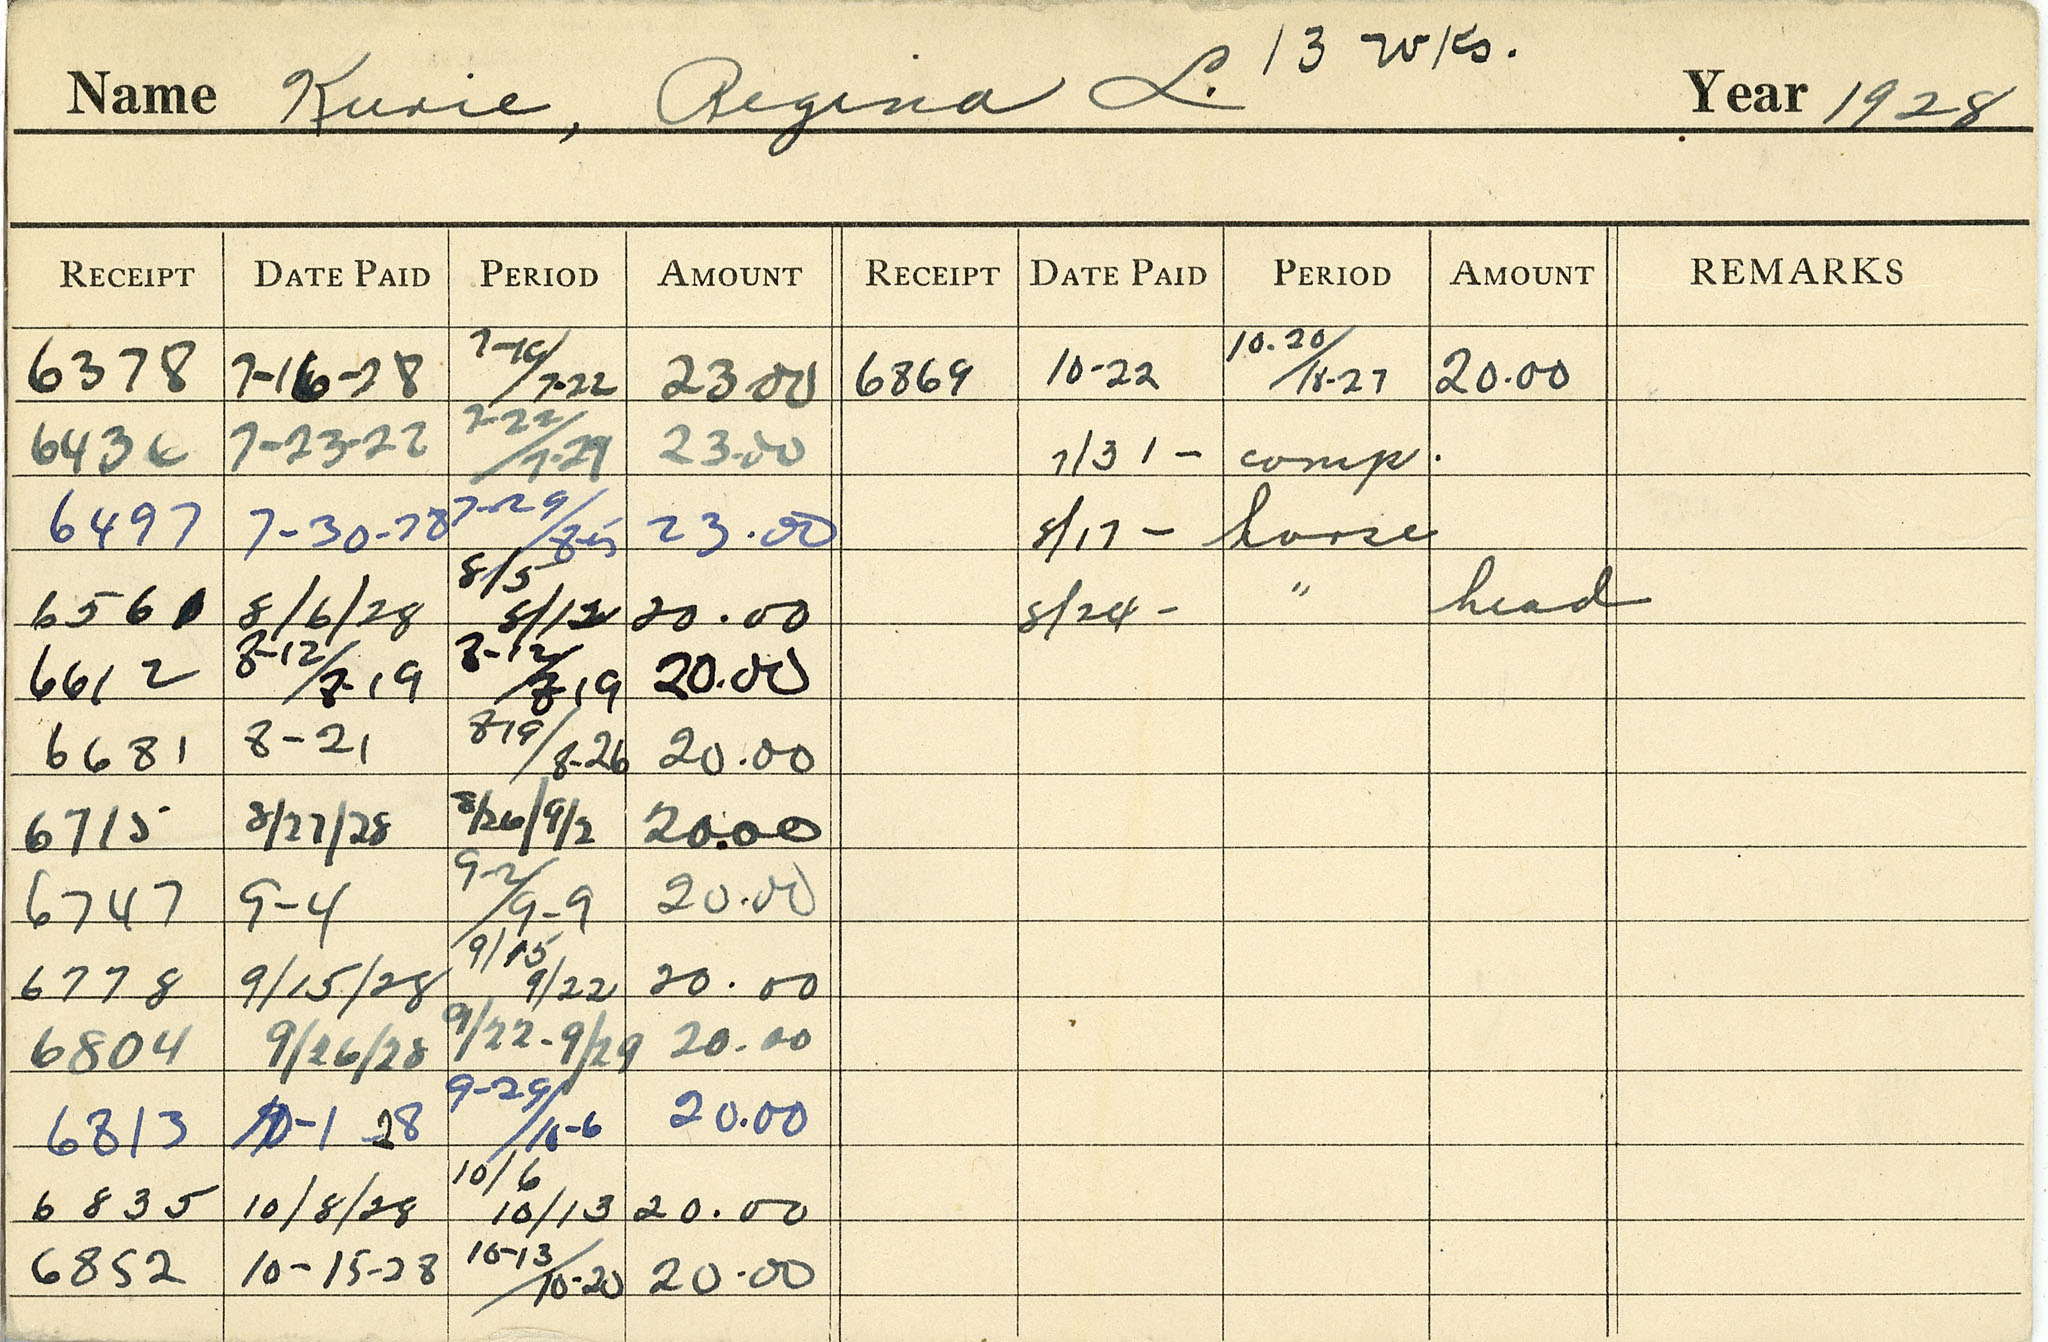 Name Kurie, Regina L. 13 wks. Year 1928
RECEIPT DATE PAID PERIOD AMOUNT RECEIPT DATE PAID PERIOD AMOUNT REMARKS
6378 7-16-28 7-16/7-22 23.00 6869 10-22 10-20/10-27 20.00
6436 7-23-28 7-22/7-29 23.00 7/31 - comp.
6497 7-30-28 7-29/8-5 23.00 8/17 - horse
6561 8/6/28 8/5 8/12 20.00 8/24 - " head
6612 8-12/8-19 8-12/8-19 20.00
6681 8-21 8-19/8-26 20.00
6715 8/27/28 8/26/9/2 20.00
6747 9-4 9-2/9-9 20.00
6778 9/15/28 9/15 9/22 20.00
6804 9/26/28 9/22-9/29 20.00
6813 10-1 28 9-29/10-6 20.00
6835 10/8/28 10/6 10/13 20.00
6852 10-15-28 10-13/10-20 20.00